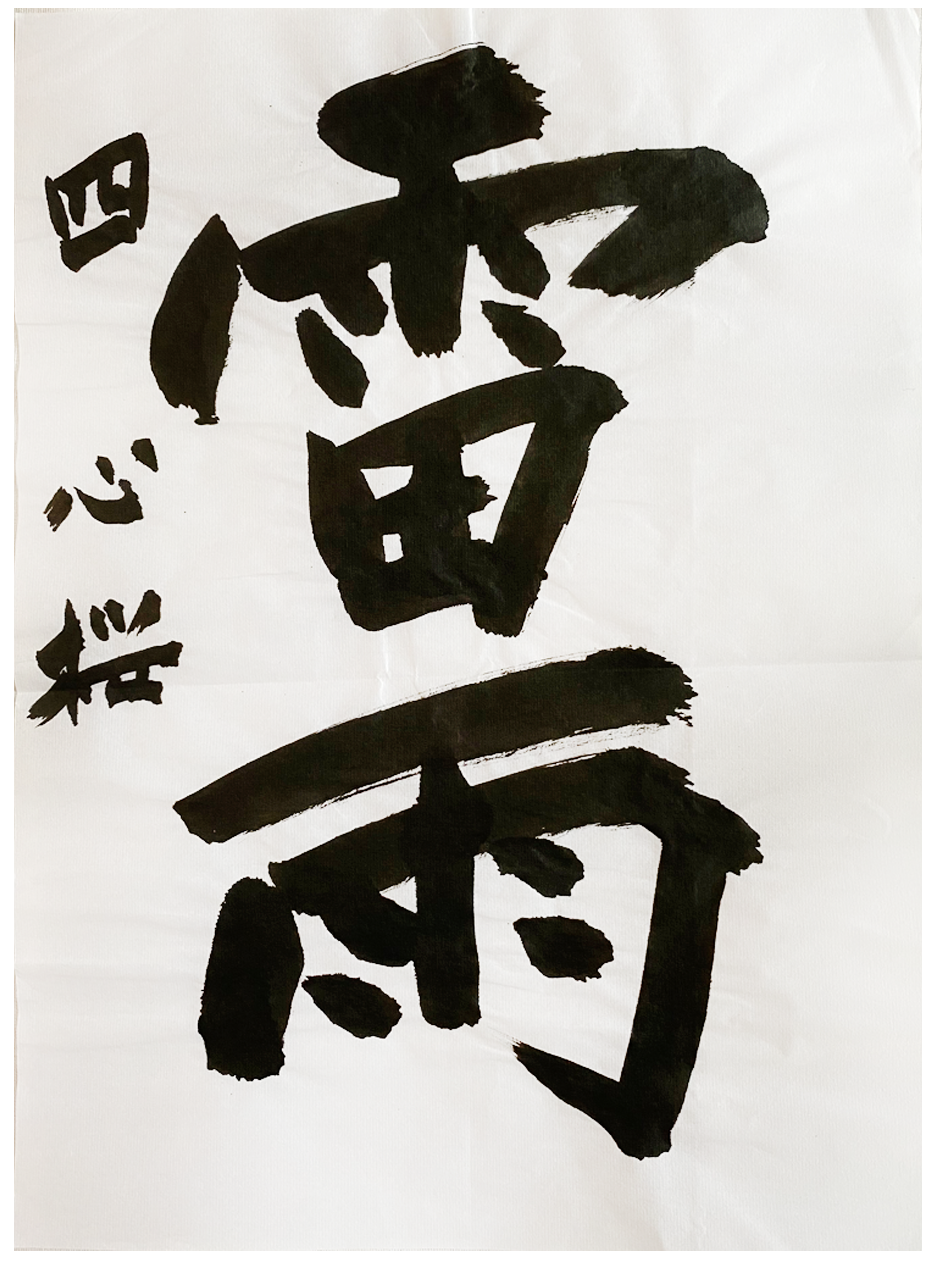 雷雨
四 心桜